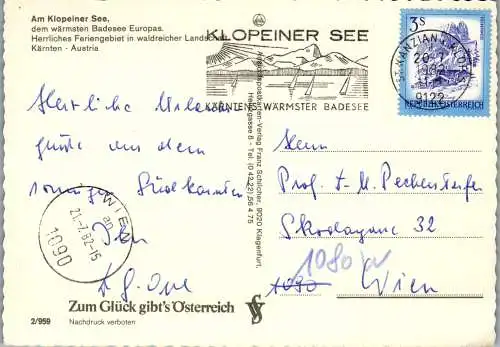 Am Klopeiner See,
dem wärmsten Badesee Europas.
Herrliches Feriengebiet in waldreicher Landschaft
Kärnten - Austria.
KLOPEINER SEE
KÄRNTENS WÄRMSTER BADESEE
3 S
REPUBLIK ÖSTERREICH
ST. KANZIAN
20.-7.
1982
9122
Herzliche Urlaubs-
grüße aus dem
sonnigen Südkärnten
WIEN
21.-7.82-15
1090
Franz Schilcher, 9020 Klagenfurt,
Tel. (0 42 22) 56 4 75
Herrn
Prof. F. M. Pechersdorfer
Skodagasse 32
1080 W
1090
Wien
Zum Glück gibt's Österreich
2/959
Nachdruck verboten